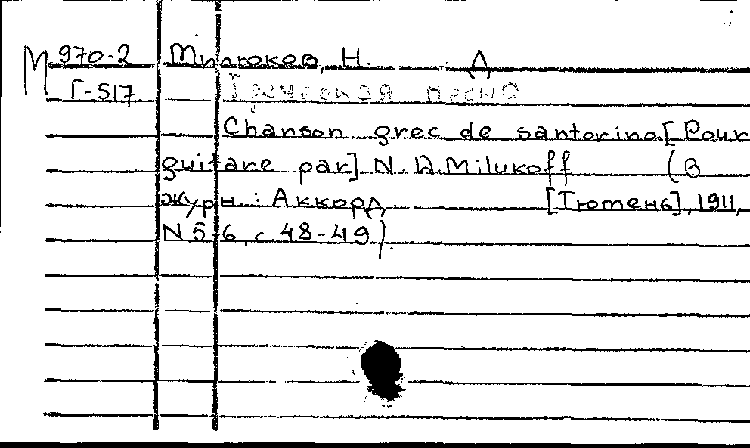 М 970-2 Милюков, Н. А
Г-517 Греческая песня
Chanson grec de santorino [Pour
guitare par] N. A. Milukoff (В
журн.: Аккорд [Тюмень], 1911,
N 5-6, с 48-49)